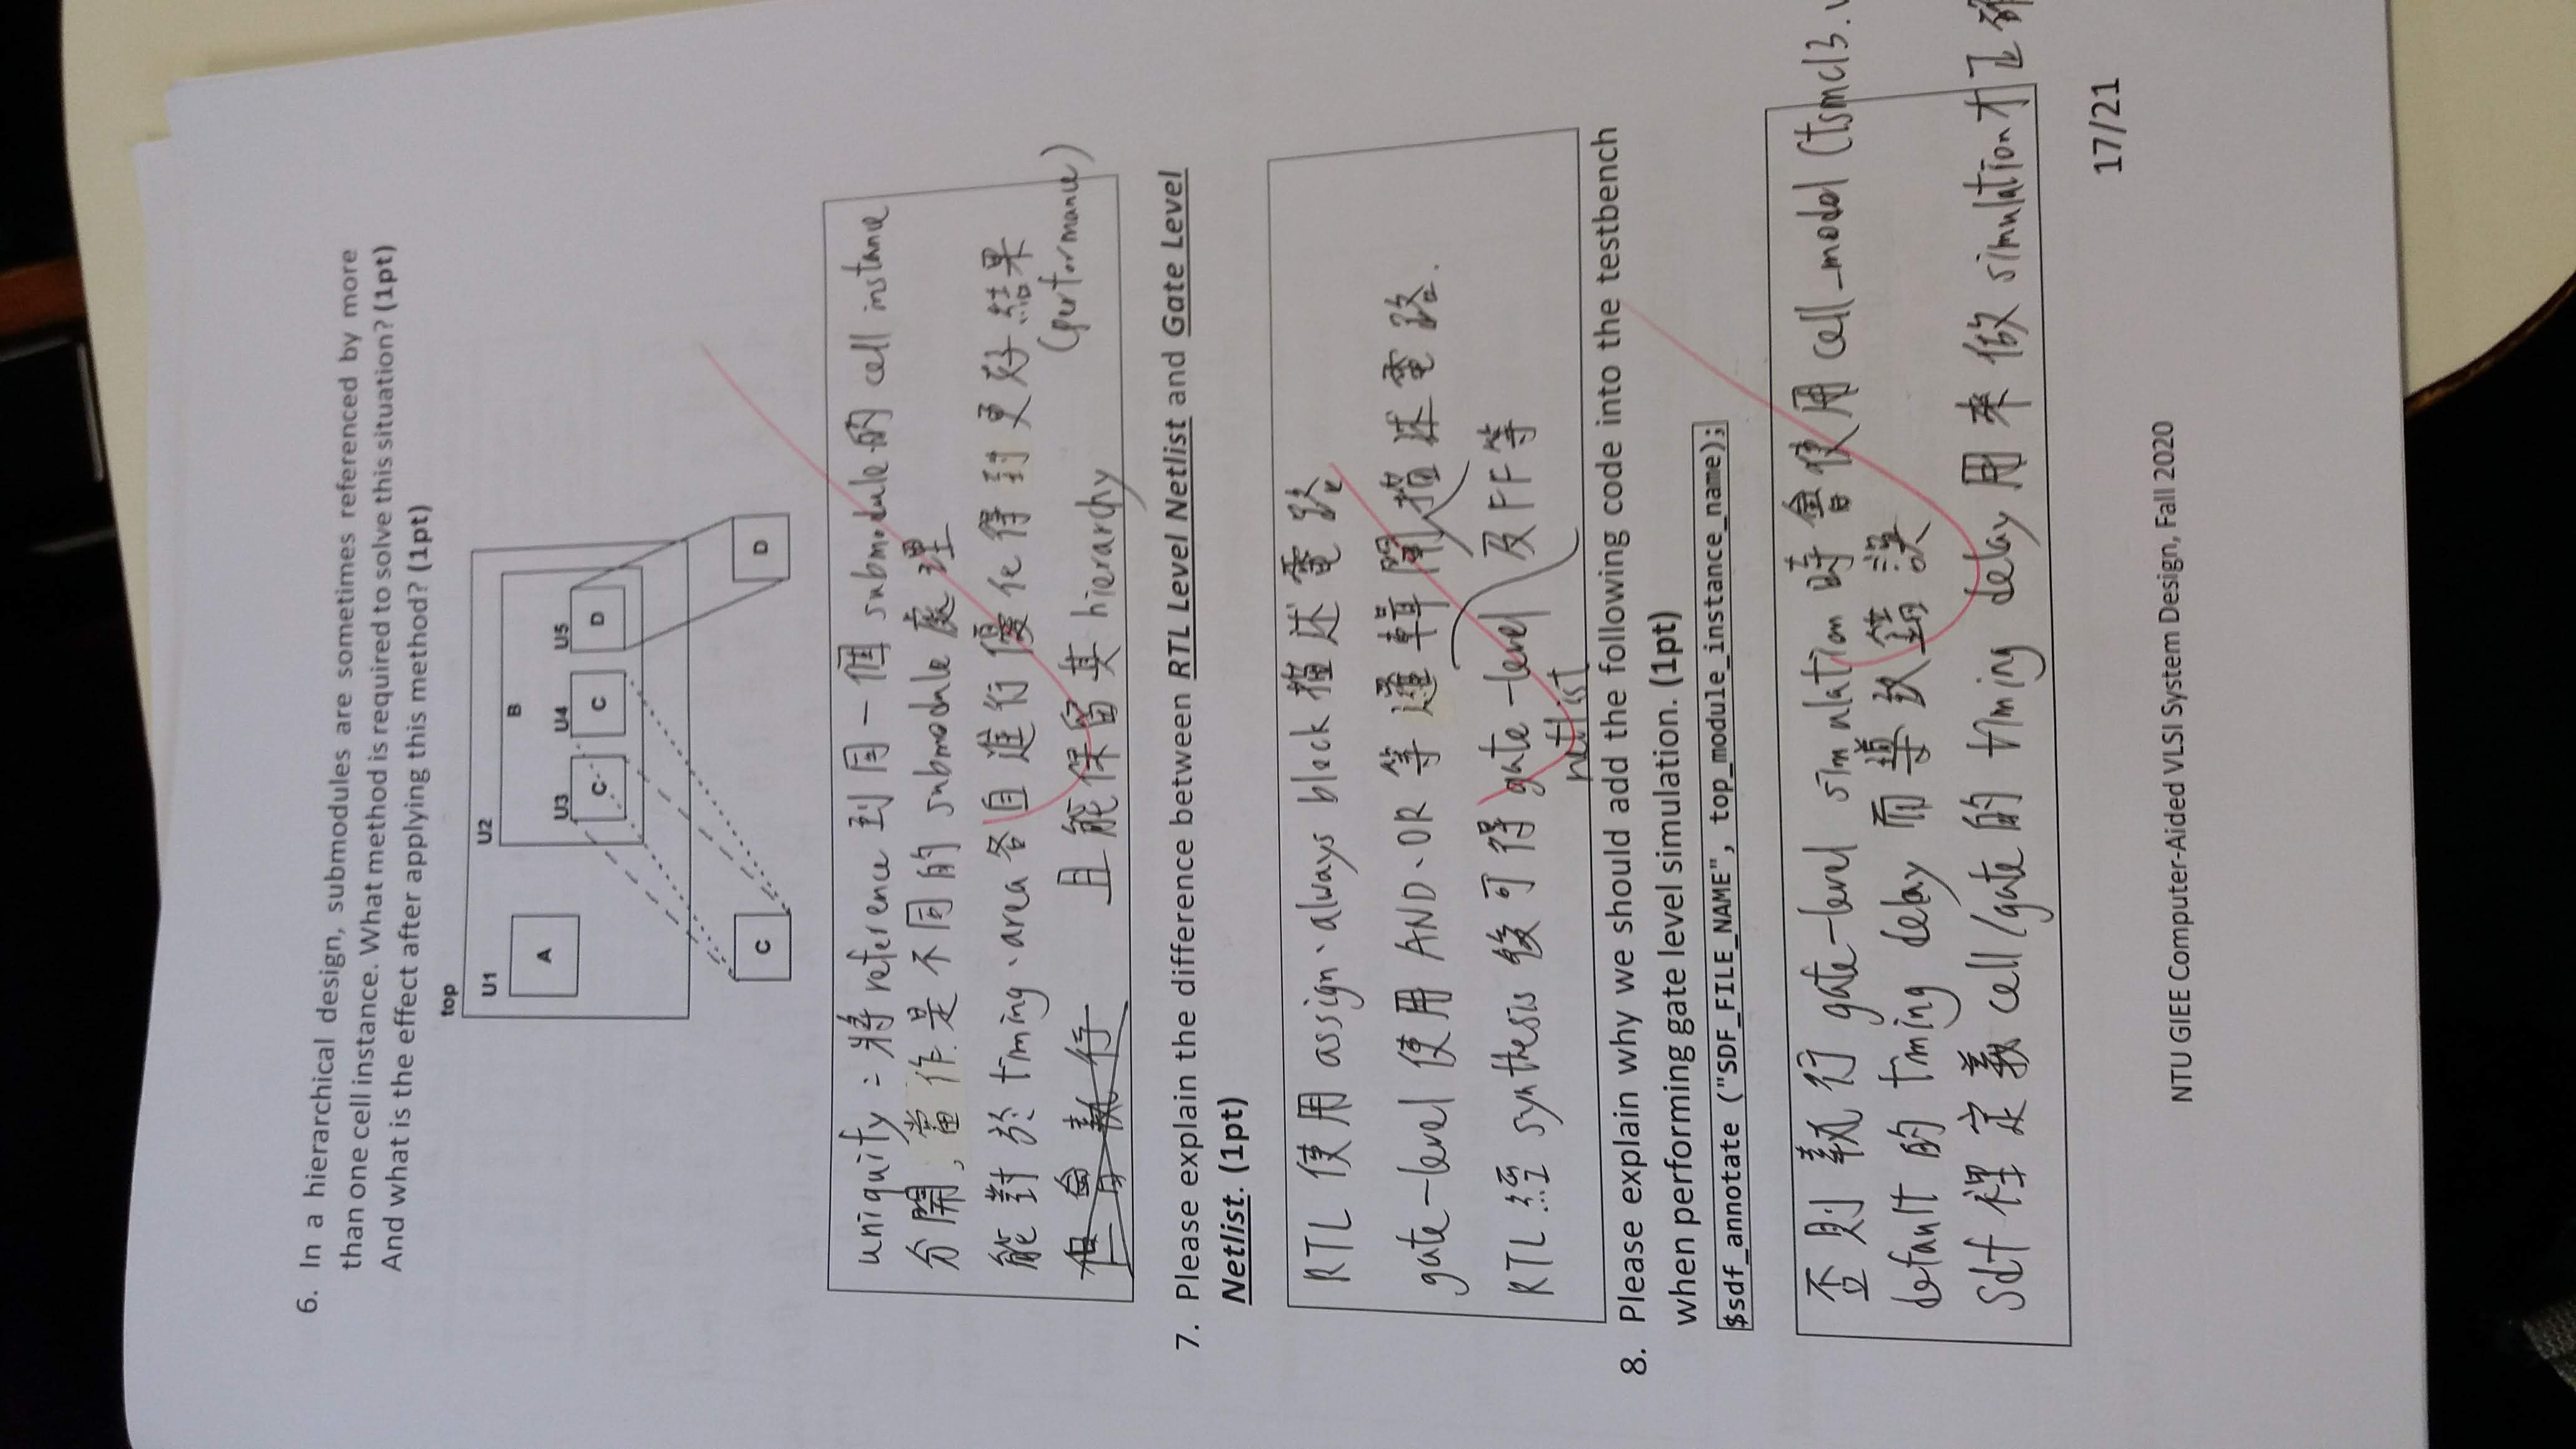 6. In a hierarchical design, submodules are sometimes referenced by more
than one cell instance. What method is required to solve this situation? (1pt)
And what is the effect after applying this method? (1pt)
top
U1
U2
A
B
U3
U4
U5
C
C
D
C
D
uniquify : 將 reference 到同一個 submodule 的 cell instance
分開, 當作是不同的 submodule 處理
能對於 timing、area 各自進行優化得到更好結果
(performance)
但會執行 且能保留其 hierarchy
7. Please explain the difference between RTL Level Netlist and Gate Level
Netlist. (1pt)
RTL 使用 assign、always block 描述電路
gate-level 使用 AND、OR 等邏輯閘描述電路.
RTL 經 synthesis 後可得 gate-level 及FF等
netlist
8. Please explain why we should add the following code into the testbench
when performing gate level simulation. (1pt)
$sdf_annotate ("SDF_FILE_NAME", top_module_instance_name);
否則執行 gate-level simulation 時會使用 cell_model (tsmc13.v
default 的 timing delay 而導致錯誤
Sdf 裡定義 cell/gate 的 timing delay 用來做 simulation才正確
17/21
NTU GIEE Computer-Aided VLSI System Design, Fall 2020